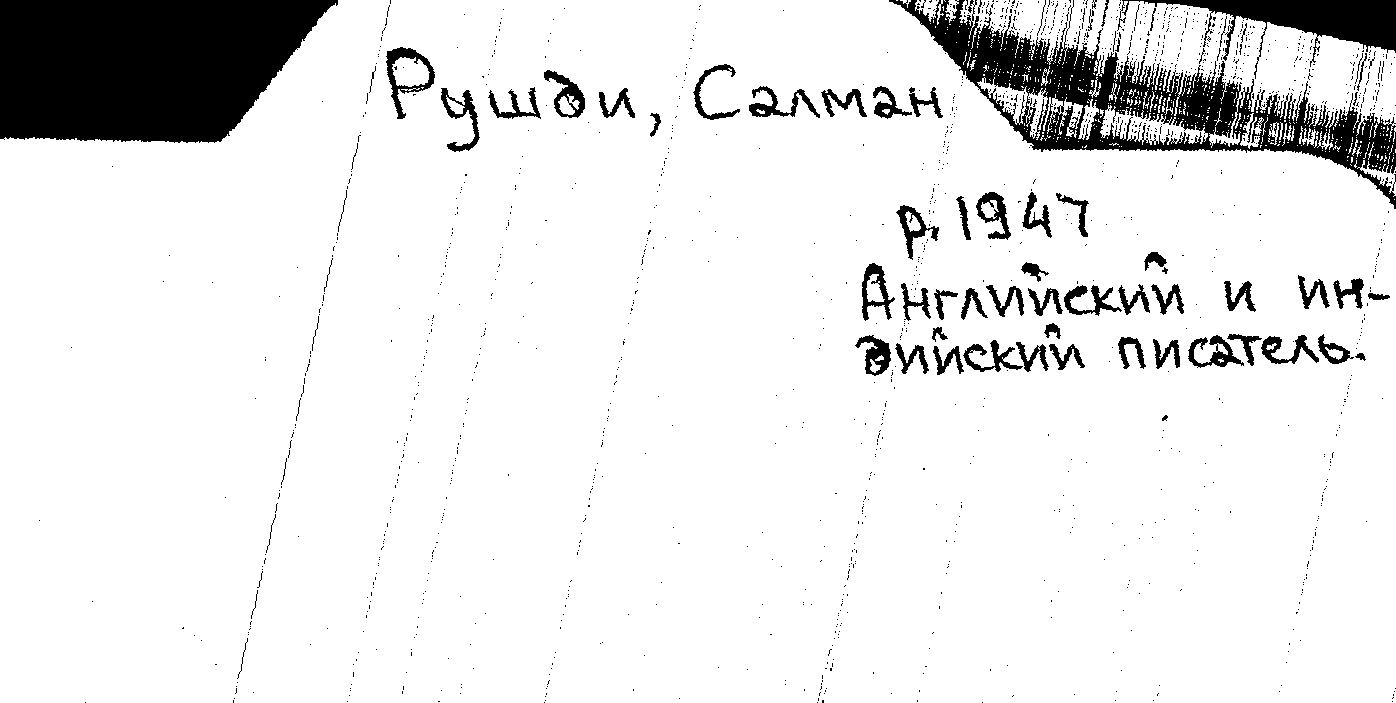 Рушди, Салман
р. 1947
Английский и ин-
дийский писатель.